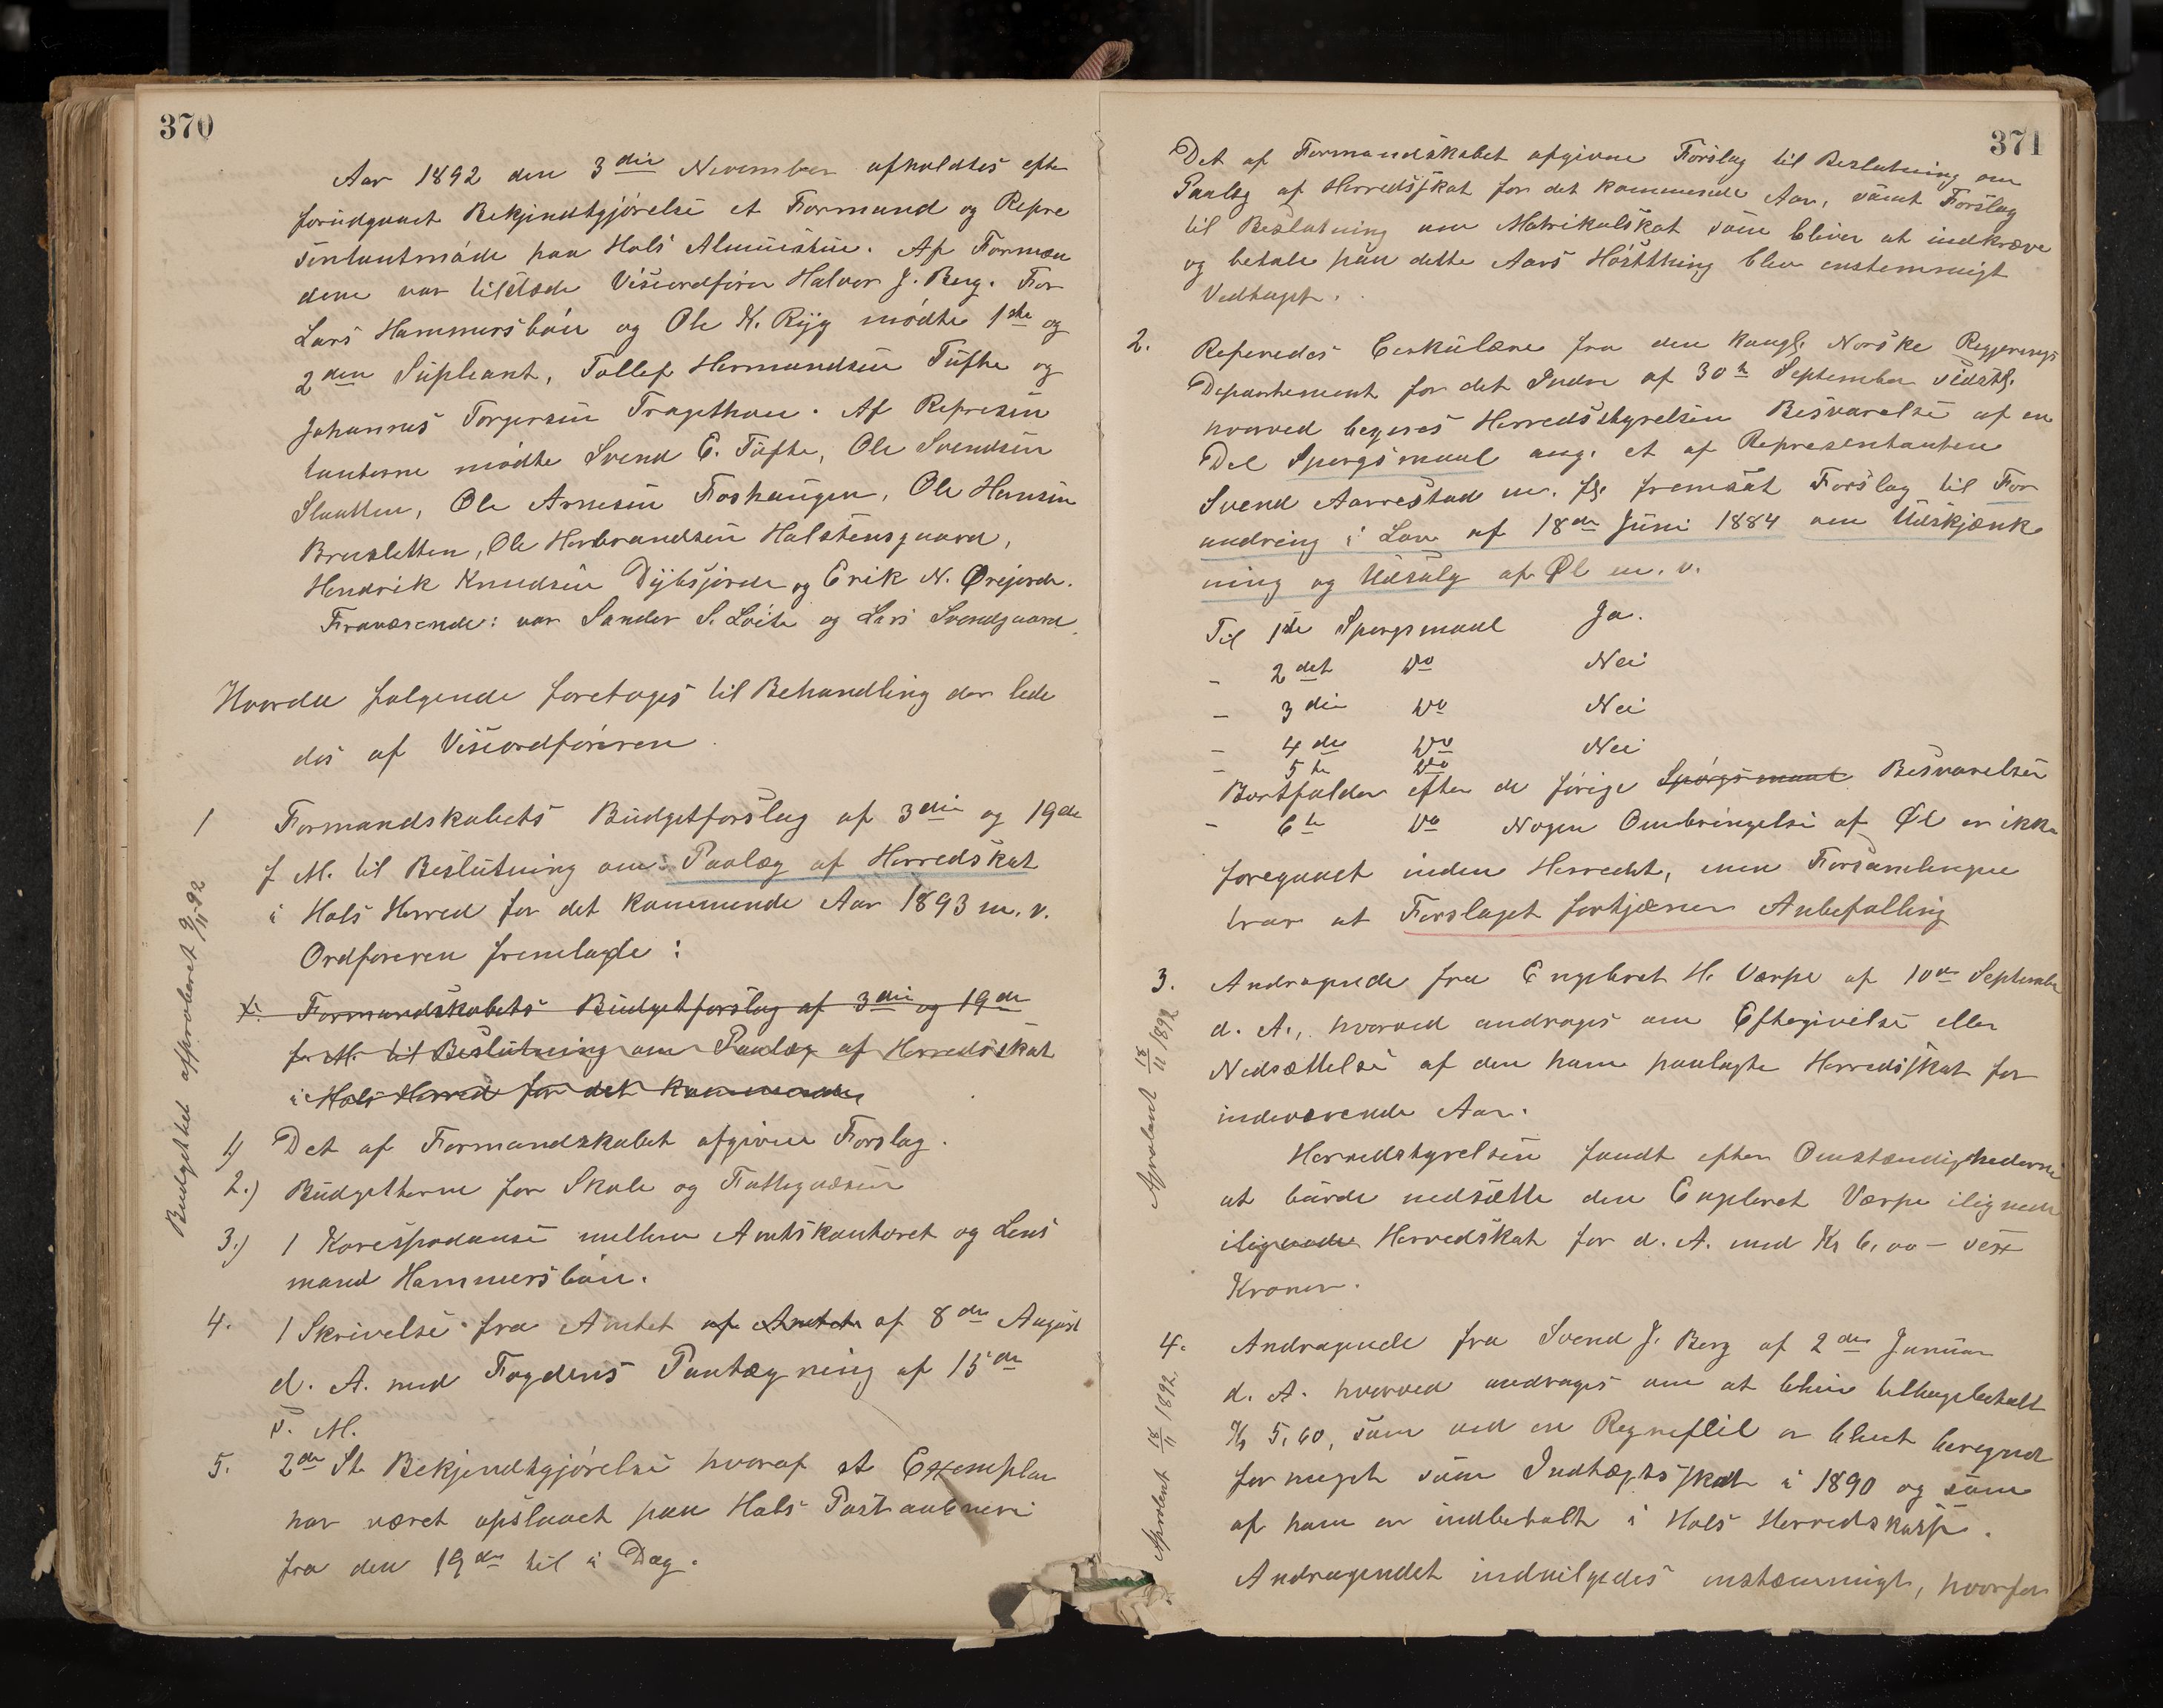 370
Aar 1892 den 3die November afholdtes efter
forudgaaet Bekjendtgjørelse et Formand og Repre
sentantmøde paa Hols Almuestue. Af Formæn
dene var tilstæde Viseordfører Halvor J. Berg. For
Lars Hammersbøen og Ole K. Ryg mødte 1ste og
2den Supleant, Tollef Hermundsen Tufte og
Johannes Torgersen Tragethon. Af Represen
tanterne mødte Svend E. Tufte, Ole Svendsen
Slaatten, Ole Arnesen Foshaugen, Ole Hansen
Brusletten, Ole Herbrandsen Halstensgaard,
Hendrik Knudsen Dybsjorde og Erik N. Ørejorde.
Fraværende: var Sander S. Løite og Lars Svendsgaard.
Hvorda følgende foretoges til Behandling der lede
des af Viseordføreren.
1 Formandskabets Budgetforslag af 3die og 19de
f M. til Beslutning om: Paalæg af Herredskat
i Hols Herred for det kommende Aar 1893 m. v.
Ordføreren fremlagde:
Formandskabets Budgetforslag af 3die og 19de
f. M. til Beslutning om Paalæg af Herredsskat
i Hols Herred for det kommende
1) Det af Formandskabet afgivne Forslag.
2.) Budgetterne for Skole og Fattigvæsen
3.) 1 Korespodanse mellem Amtskontoret og Lens
mand Hammersbøen.
4. 1 Skrivelse fra Amtet af Amtet af 8de August
d. A. med Fogdens Paategning af 15de
s. M.
5. 2de St. Bekjendtgjørelse hvoraf et Exemplar
har været opslaaet paa Hols Postaabneri
fra den 19de til i Dag.
Budgettet approberet 9/11 92
371
Det af Formandskabet afgivne Forslag til Beslutning om
Paalæg af Herredsskat for det kommende Aar, samt Forslag
til Beslutning om Matrikulskat som bliver at indkræve
og betale paa dette Aars Høstthing blev enstemmigt
Vedtaget.
2. Referedes Cirkulære fra den kongl. Norske Regjerings
Departement for det Indre af 30te September sidstl.
hvorved begjeres Herredsstyrelsen Besvarelse af en
Del Spørgsmaal ang. et af Representanten
Svend Aarrestad m. fl. fremsat Forslag til For
andring i Lov af 18de Juni 1884 om Udskjænk
ning og Udsalg af Øl m. v.
Til 1ste Spørgsmaal Ja.
- 2det do Nei
- 3die do Nei
- 4de do Nei
- 5te do
Bortfalder efter de forige Spørgsmaal Besvarelser
- 6te do Nogen Ombringelse af Øl er ikke
foregaaet inden Herredet, men Forsamlingen
tror at Forslaget fortjener Anbefalling
3. Andragende fra Engebret H. Værpe af 10de September
d. A., hvorved andrages om Eftergivelse eller
Nedsættelse af den ham paalagte Herredsskat for
indeværende Aar.
Herredstyrelsen fandt efter Omstændighederne
at burde nedsætte den Engebret Værpe ilignede
ilignede Herredskat for d. A. med Kr 6,00 - sex
Kroner.
4. Andragende fra Svend J. Berg af 2den Januar
d. A. hvorved andrages om at blive tilbagebetalt
Kr 5,60, som ved en Regnefeil er blevet beregnet
for meget som Indtægtsskat i 1890 og som
af ham er indbetalt i Hols Herredskasse.
Andragendet indvilgedes enstemmigt, hvorfor